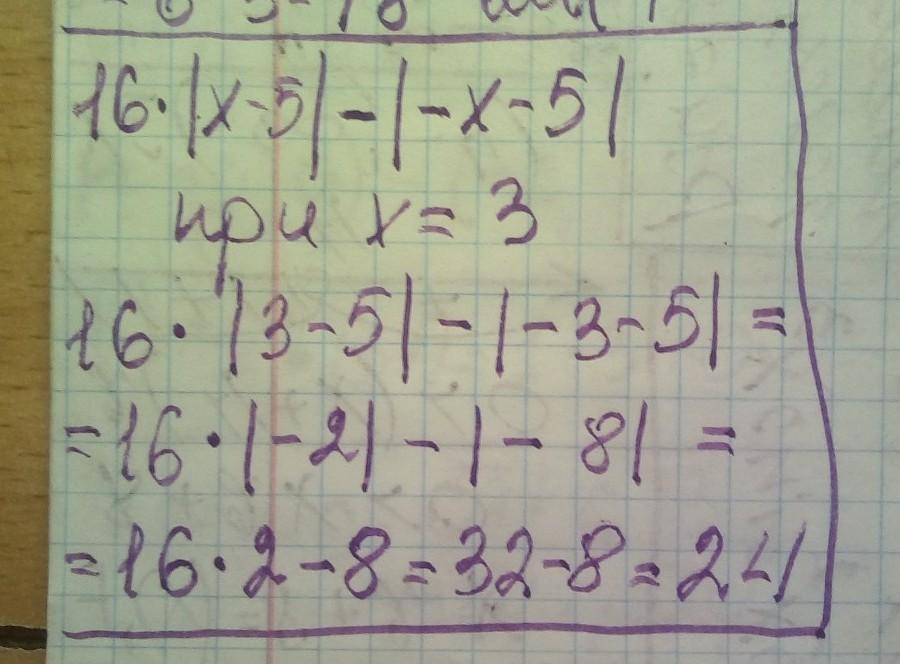 16·|x-5|-|-x-5|
при x=3
16·|3-5|-|-3-5|=
=16·|-2|-|-8|=
=16·2-8=32-8=24